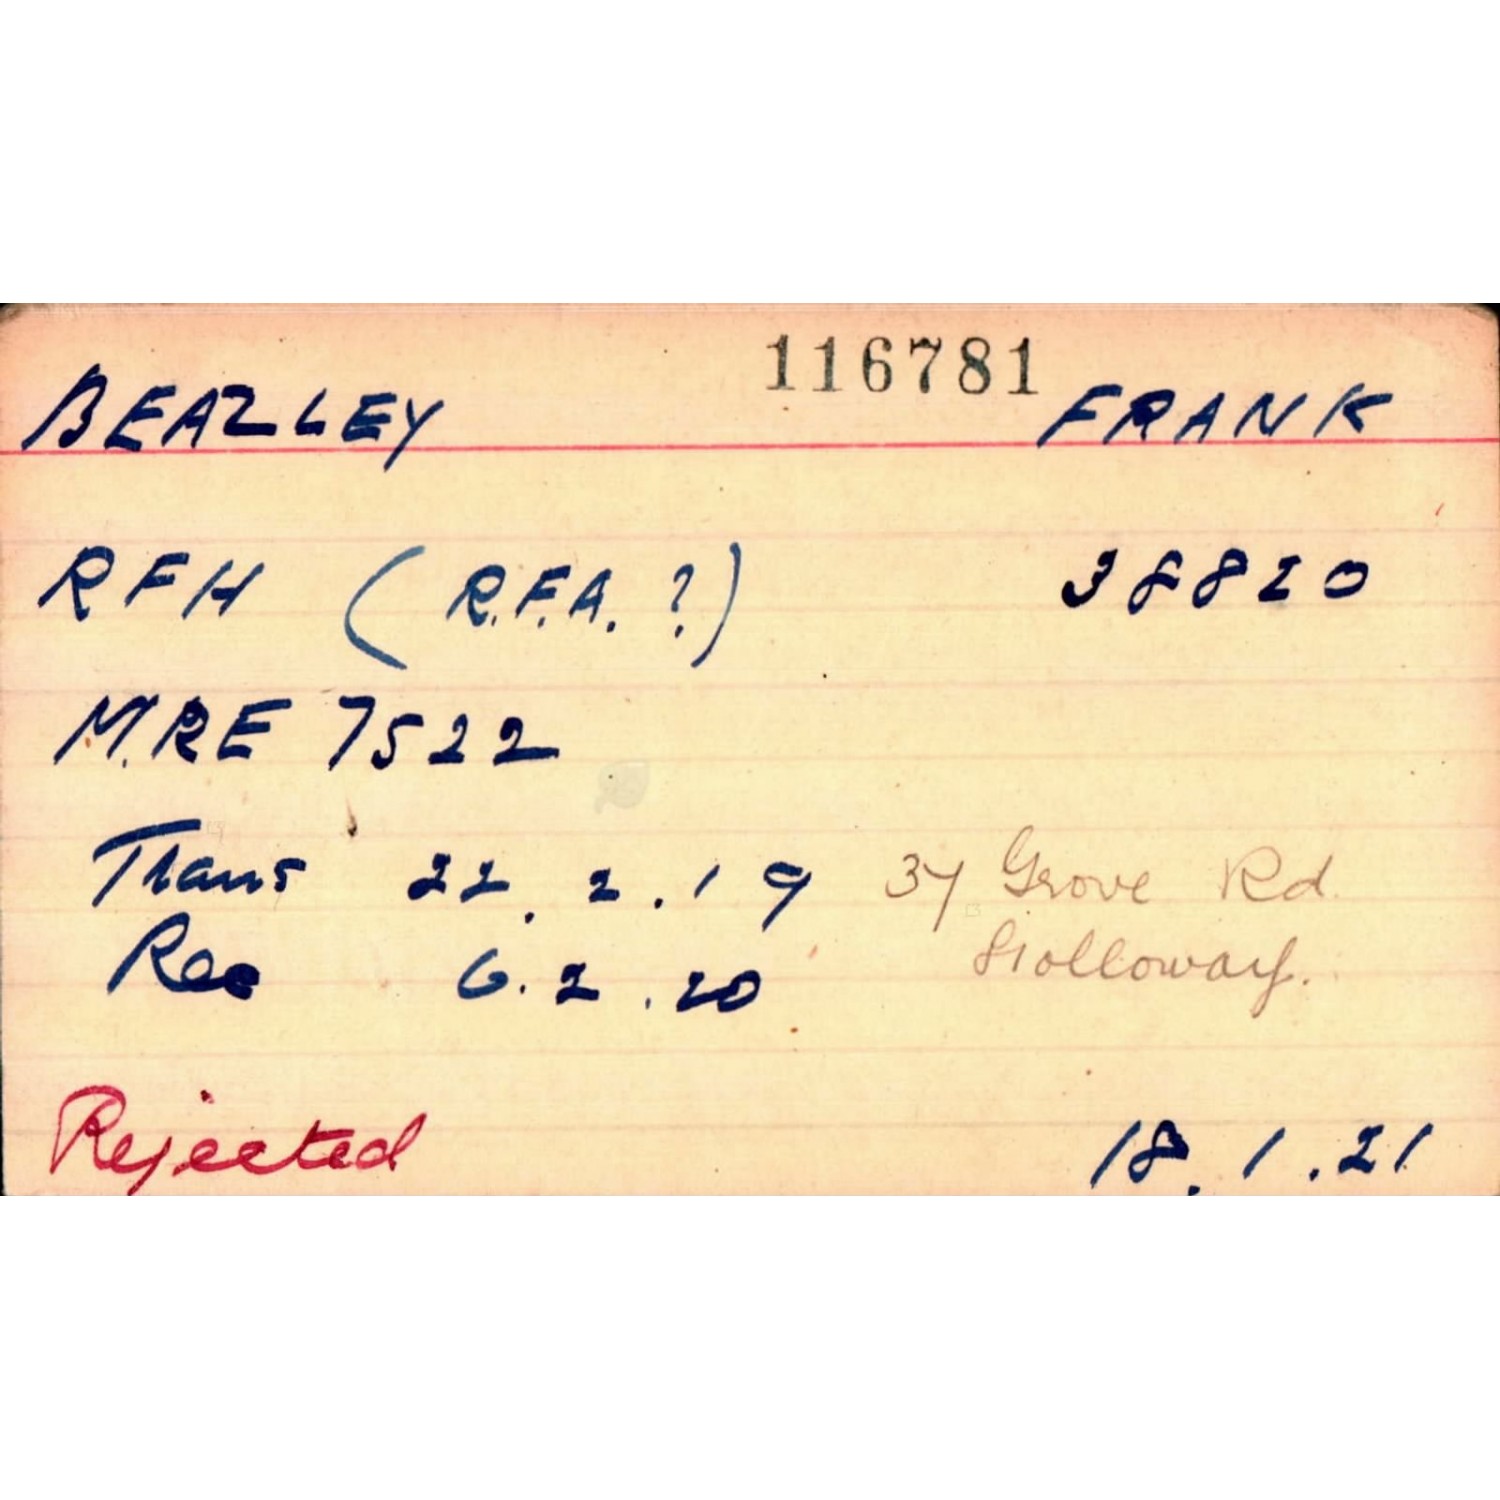 116781
BEAZLEY FRANK
RFH (R.F.A. ?) 38820
M.RE 7522
Trans 22.2.19 37 Grove Rd.
Rec 6.2.20 Holloway.
Rejected 18.1.21